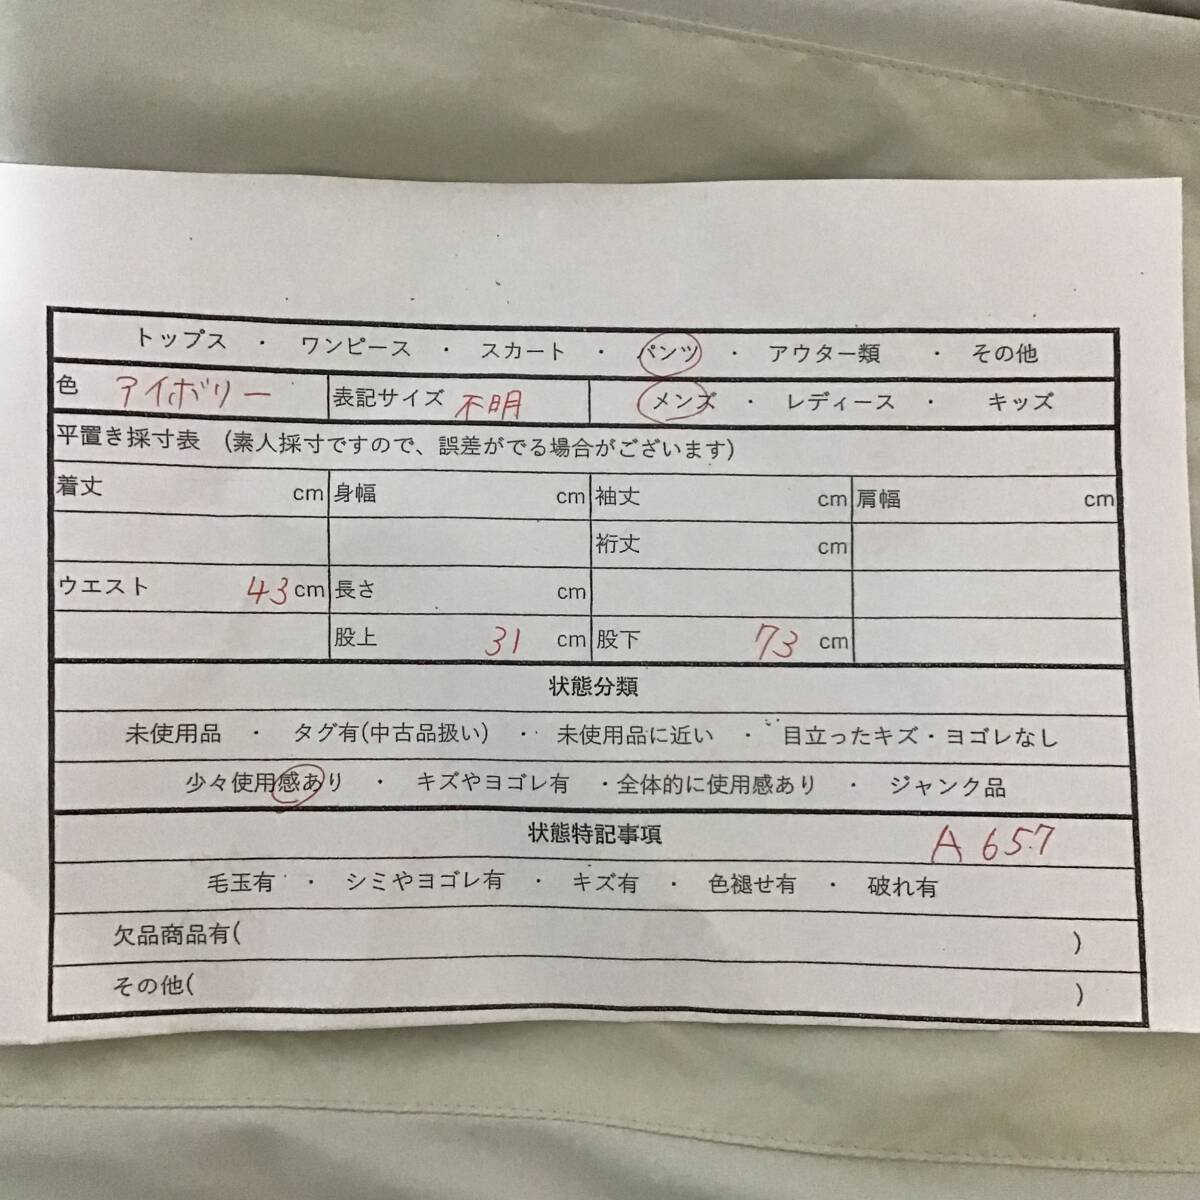 トップス ・ ワンピース ・ スカート ・ パンツ ・ アウター類 ・ その他
色 アイボリー 表記サイズ 不明 メンズ ・ レディース ・ キッズ
平置き採寸表 (素人採寸ですので、誤差がでる場合がございます)
着丈 cm 身幅 cm 袖丈 cm 肩幅 cm
裄丈 cm
ウエスト 43cm 長さ cm
股上 31 cm 股下 73 cm
状態分類
未使用品 ・ タグ有(中古品扱い) ・ 未使用品に近い ・ 目立ったキズ・ヨゴレなし
少々使用感あり ・ キズやヨゴレ有 ・全体的に使用感あり ・ ジャンク品
状態特記事項 A657
毛玉有 ・ シミやヨゴレ有 ・ キズ有 ・ 色褪せ有 ・ 破れ有
欠品商品有( )
その他( )